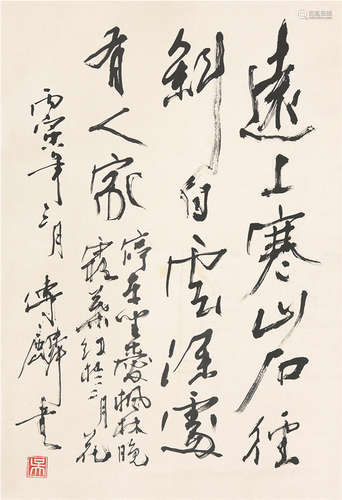 遠上寒山石徑
斜白雲深處
有人家
停車坐愛楓林晚
霜葉紅於二月花
丙寅年三月 麟書